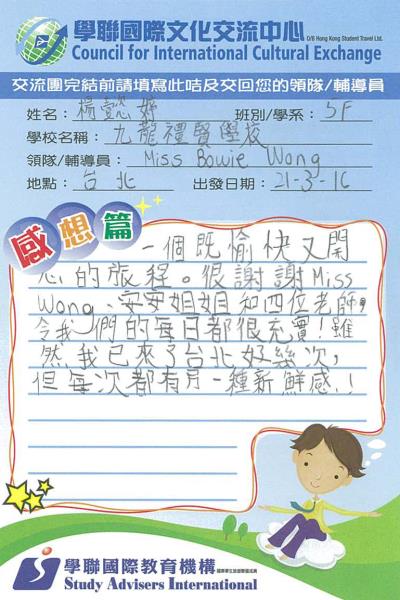 學聯國際文化交流中心
O/B Hong Kong Student Travel Ltd.
Council for International Cultural Exchange
交流團完結前請填寫此咭及交回您的領隊/輔導員
姓名：楊懿婷 班別/學系：5F
學校名稱：九龍禮賢學校
領隊/輔導員：Miss Bowie Wong
地點：台北 出發日期：21-3-16
感想篇
一個既愉快又開
心的旅程。很謝謝Miss
Wong、安安姐姐和四位老師，
令我們的每日都很充實！雖
然我已來了台北好幾次，
但每次都有另一種新鮮感！！
學聯國際教育機構
Study Advisers International